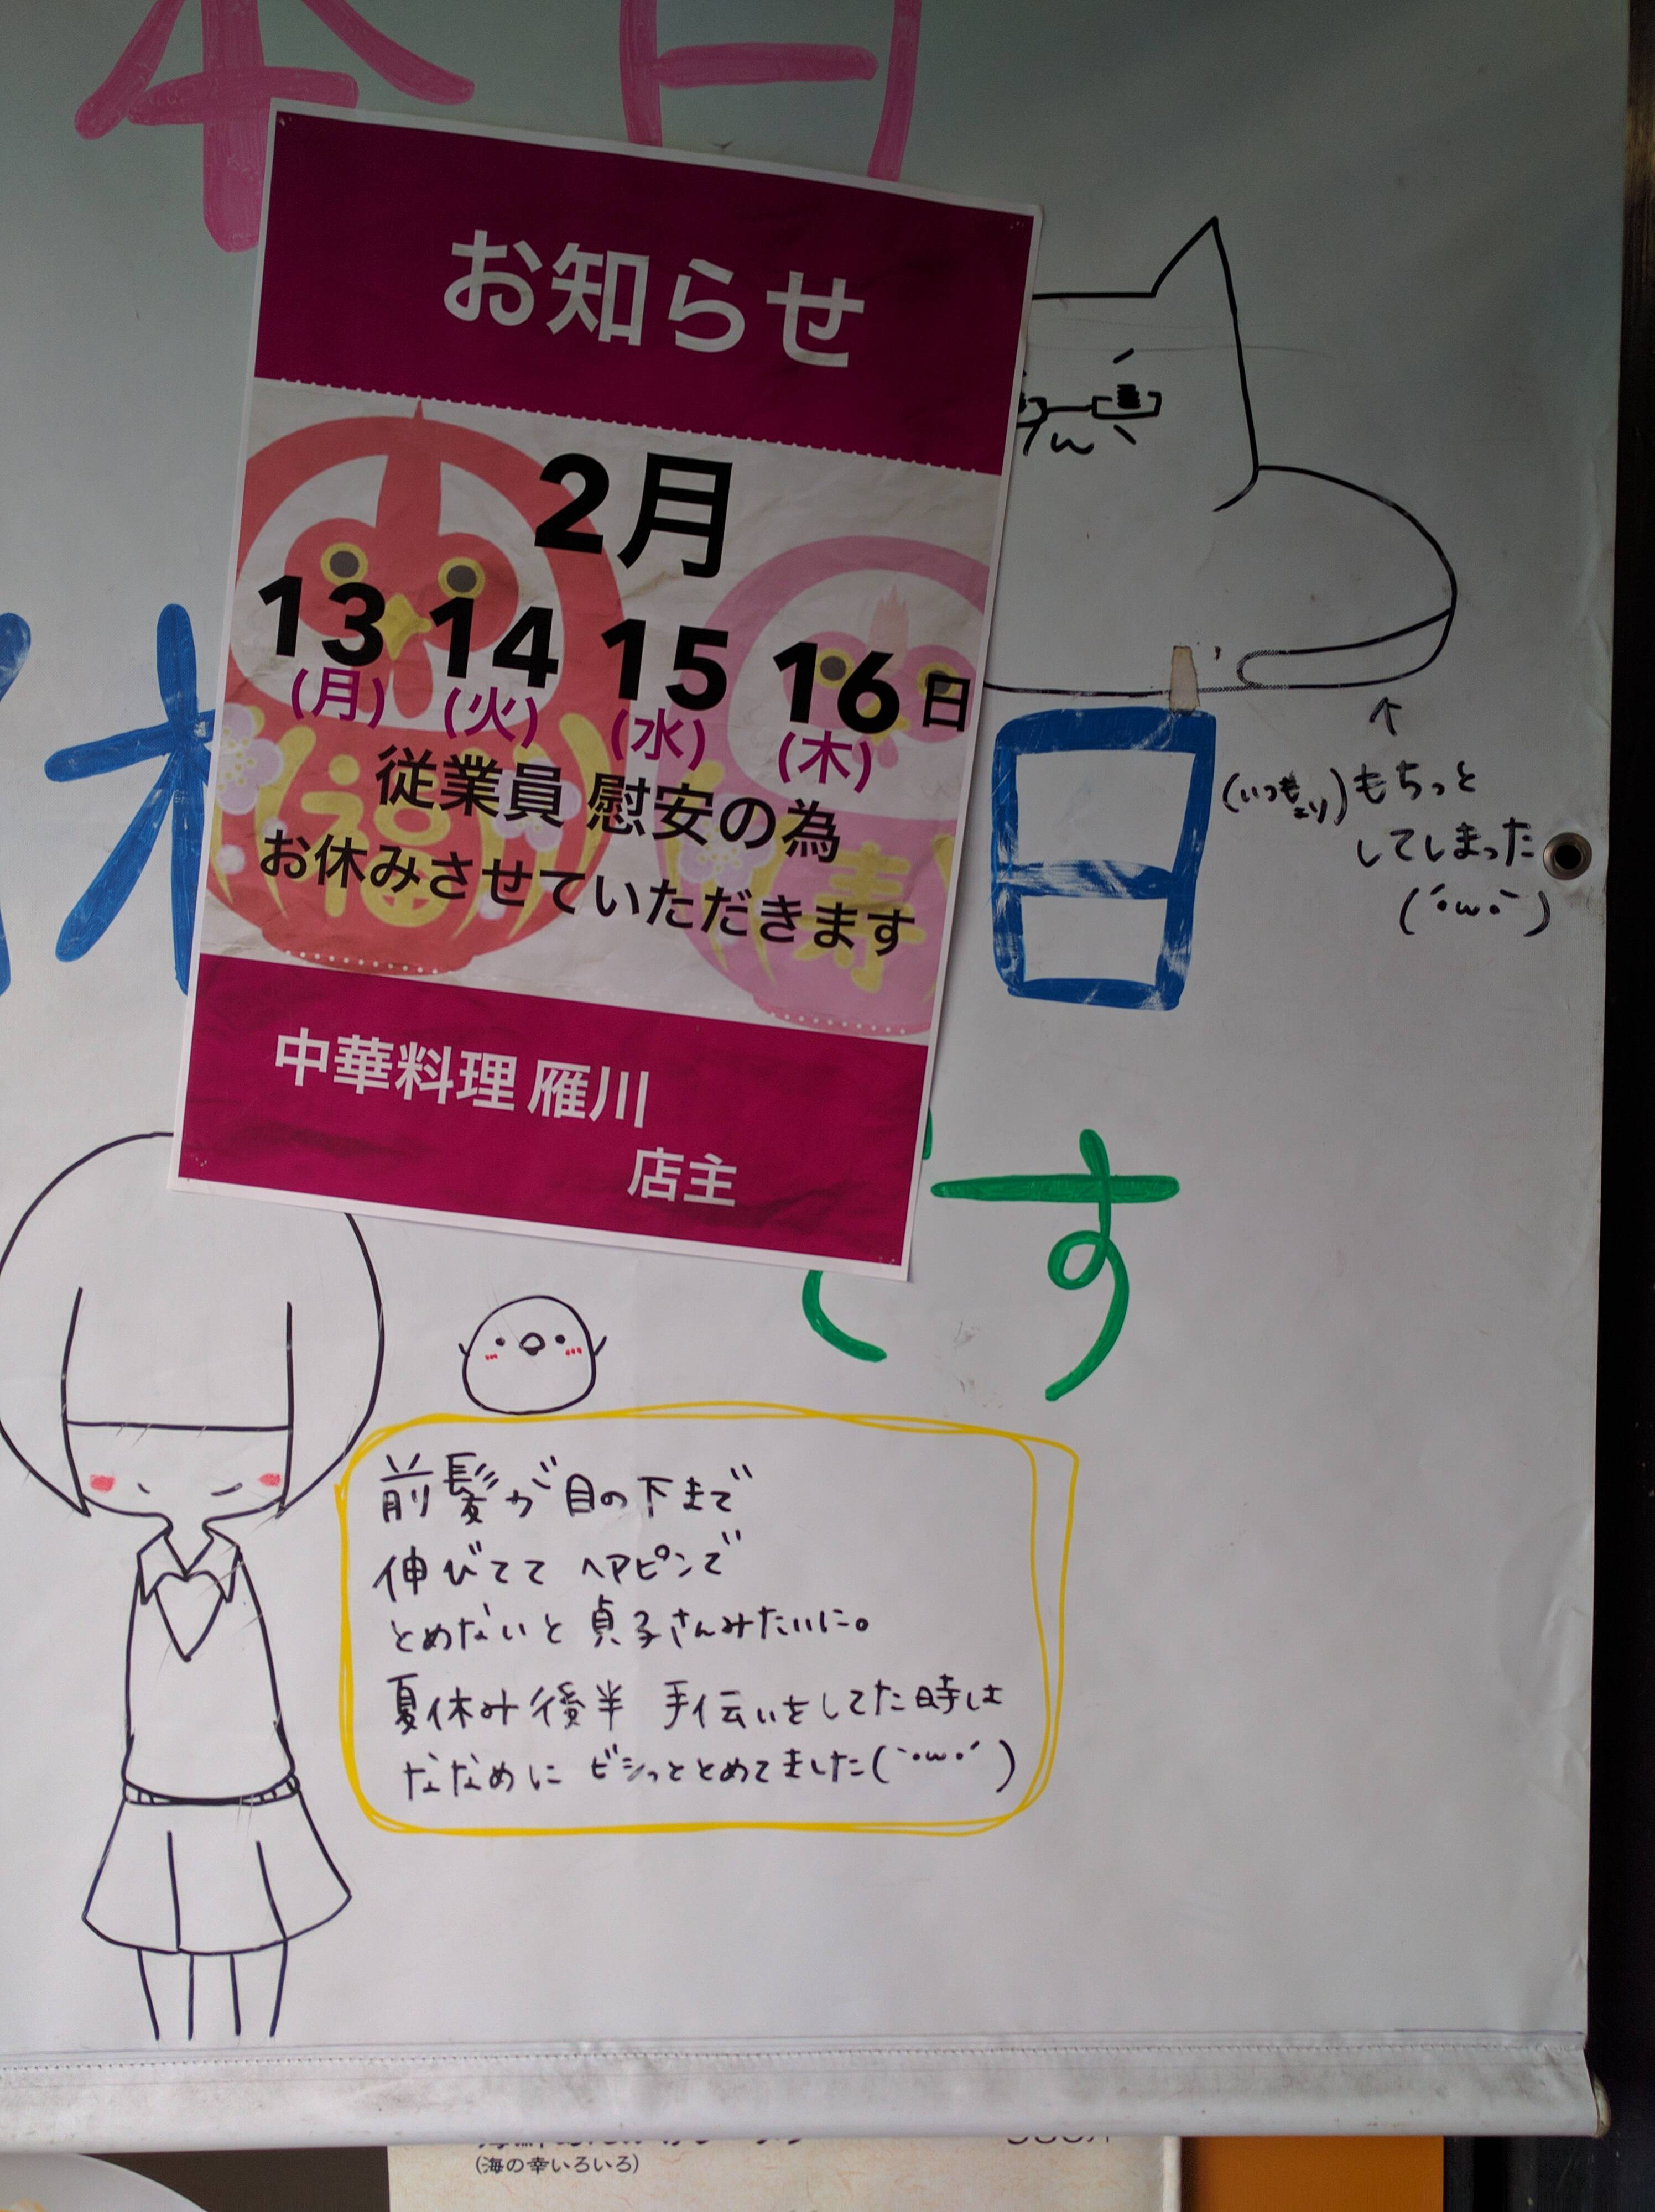 本日
お知らせ
2月
13 14 15 16日
(月) (火) (水) (木)
従業員 慰安の為
お休みさせていただきます
福 寿
中華料理 雁川
店主
日
(いつもより)もちっと
してしまった
(´•ω•`)
す
前髪が目の下まで
伸びてて ヘアピンで
とめないと 貞子さんみたいに。
夏休み後半 手伝いをしてた時は
ななめに ビシっととめてました(`•ω•´)
(海の幸いろいろ)